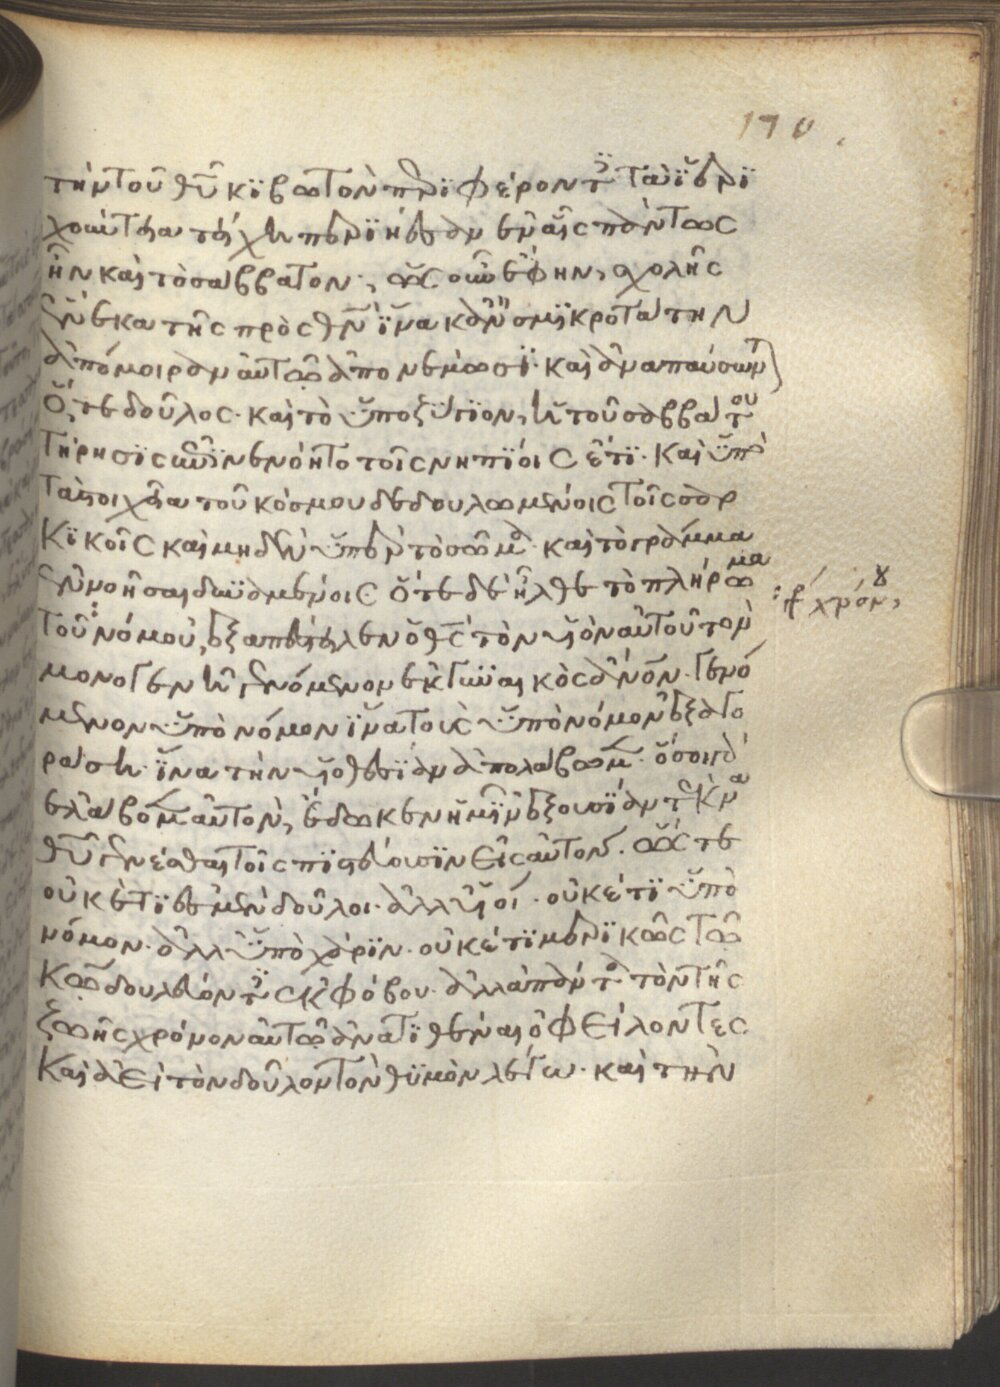 170.
τὴν τοῦ θῦ κϊβωτὸν περϊφέροντες τὰ ϊερϊ
χούντεια τείχη περϊήεσαν ἐν αἷς πάντως
ἦν καὶ τὸ σάββατον, ὡς οὖν ἔφην, σχολῆς
ἕνεκα τῆς πρὸς θν ἵνα κἂν σμϊκροτάτην
ἀπόμοιραν αὐτῶ ἀπονέμωσϊ. καὶ ἀναπαύσωντ
ὅ τε δοῦλος. καὶ τὸ ὑποζύγϊον, ἡ τοῦ σαββάτου
τήρησϊς ἐπϊνενόητο τοῖς νηπϊοις ἔτϊ. καὶ ὑπὸ
τὰ στοιχεῖα τοῦ κόσμου δεδουλωμένοις τοῖς σαρ
κϊκοῖς καὶ μηδὲν ὑπὲρ τὸ σῶμα. καὶ τὸ γράμμα
ἐννοῆσαι δυναμένοις ὅτε δὲ ἦλθε τὸ πλήρωμα
τοῦ νόμου, ἐξαπέστειλεν ὁ θς τὸν υἱὸν αὐτοῦ τὸν
μονογενῆ γενόμενον ἐκ γυναικὸς ἄνον. γενό
μενον ὑπὸ νόμον ἵνα τοὺς ὑπὸ νόμον ἐξαγο
ράση. ἵνα τὴν υἱοθεσϊαν ἀπολάβωμεν. ὅσοι γὰρ
ἐλάβομεν αὐτὸν, ἔδωκεν ἡμῖν ἐξουσϊαν τέκνα
θῦ γενέσθαι τοῖς πϊστεύουσϊν εἰς αὐτόν. ὥς τε
οὐκέτϊ ἐσμὲν δοῦλοι. ἀλλ' υἱοί. οὐκέτϊ ὑπὸ
νόμον. ἀλλ' ὑπὸ χάρϊν. οὐκέτϊ μερϊκῶς τῶ
κω δουλεύοντες ἐκ φόβου. ἀλλὰ πάντα τὸν τῆς
ζωῆς χρόνον αὐτῶ ἀνατϊθέναι ὀφείλοντες
καὶ ἀεὶ τὸν δοῦλον τὸν θυμὸν λέγω. καὶ τὴν
χρόνου